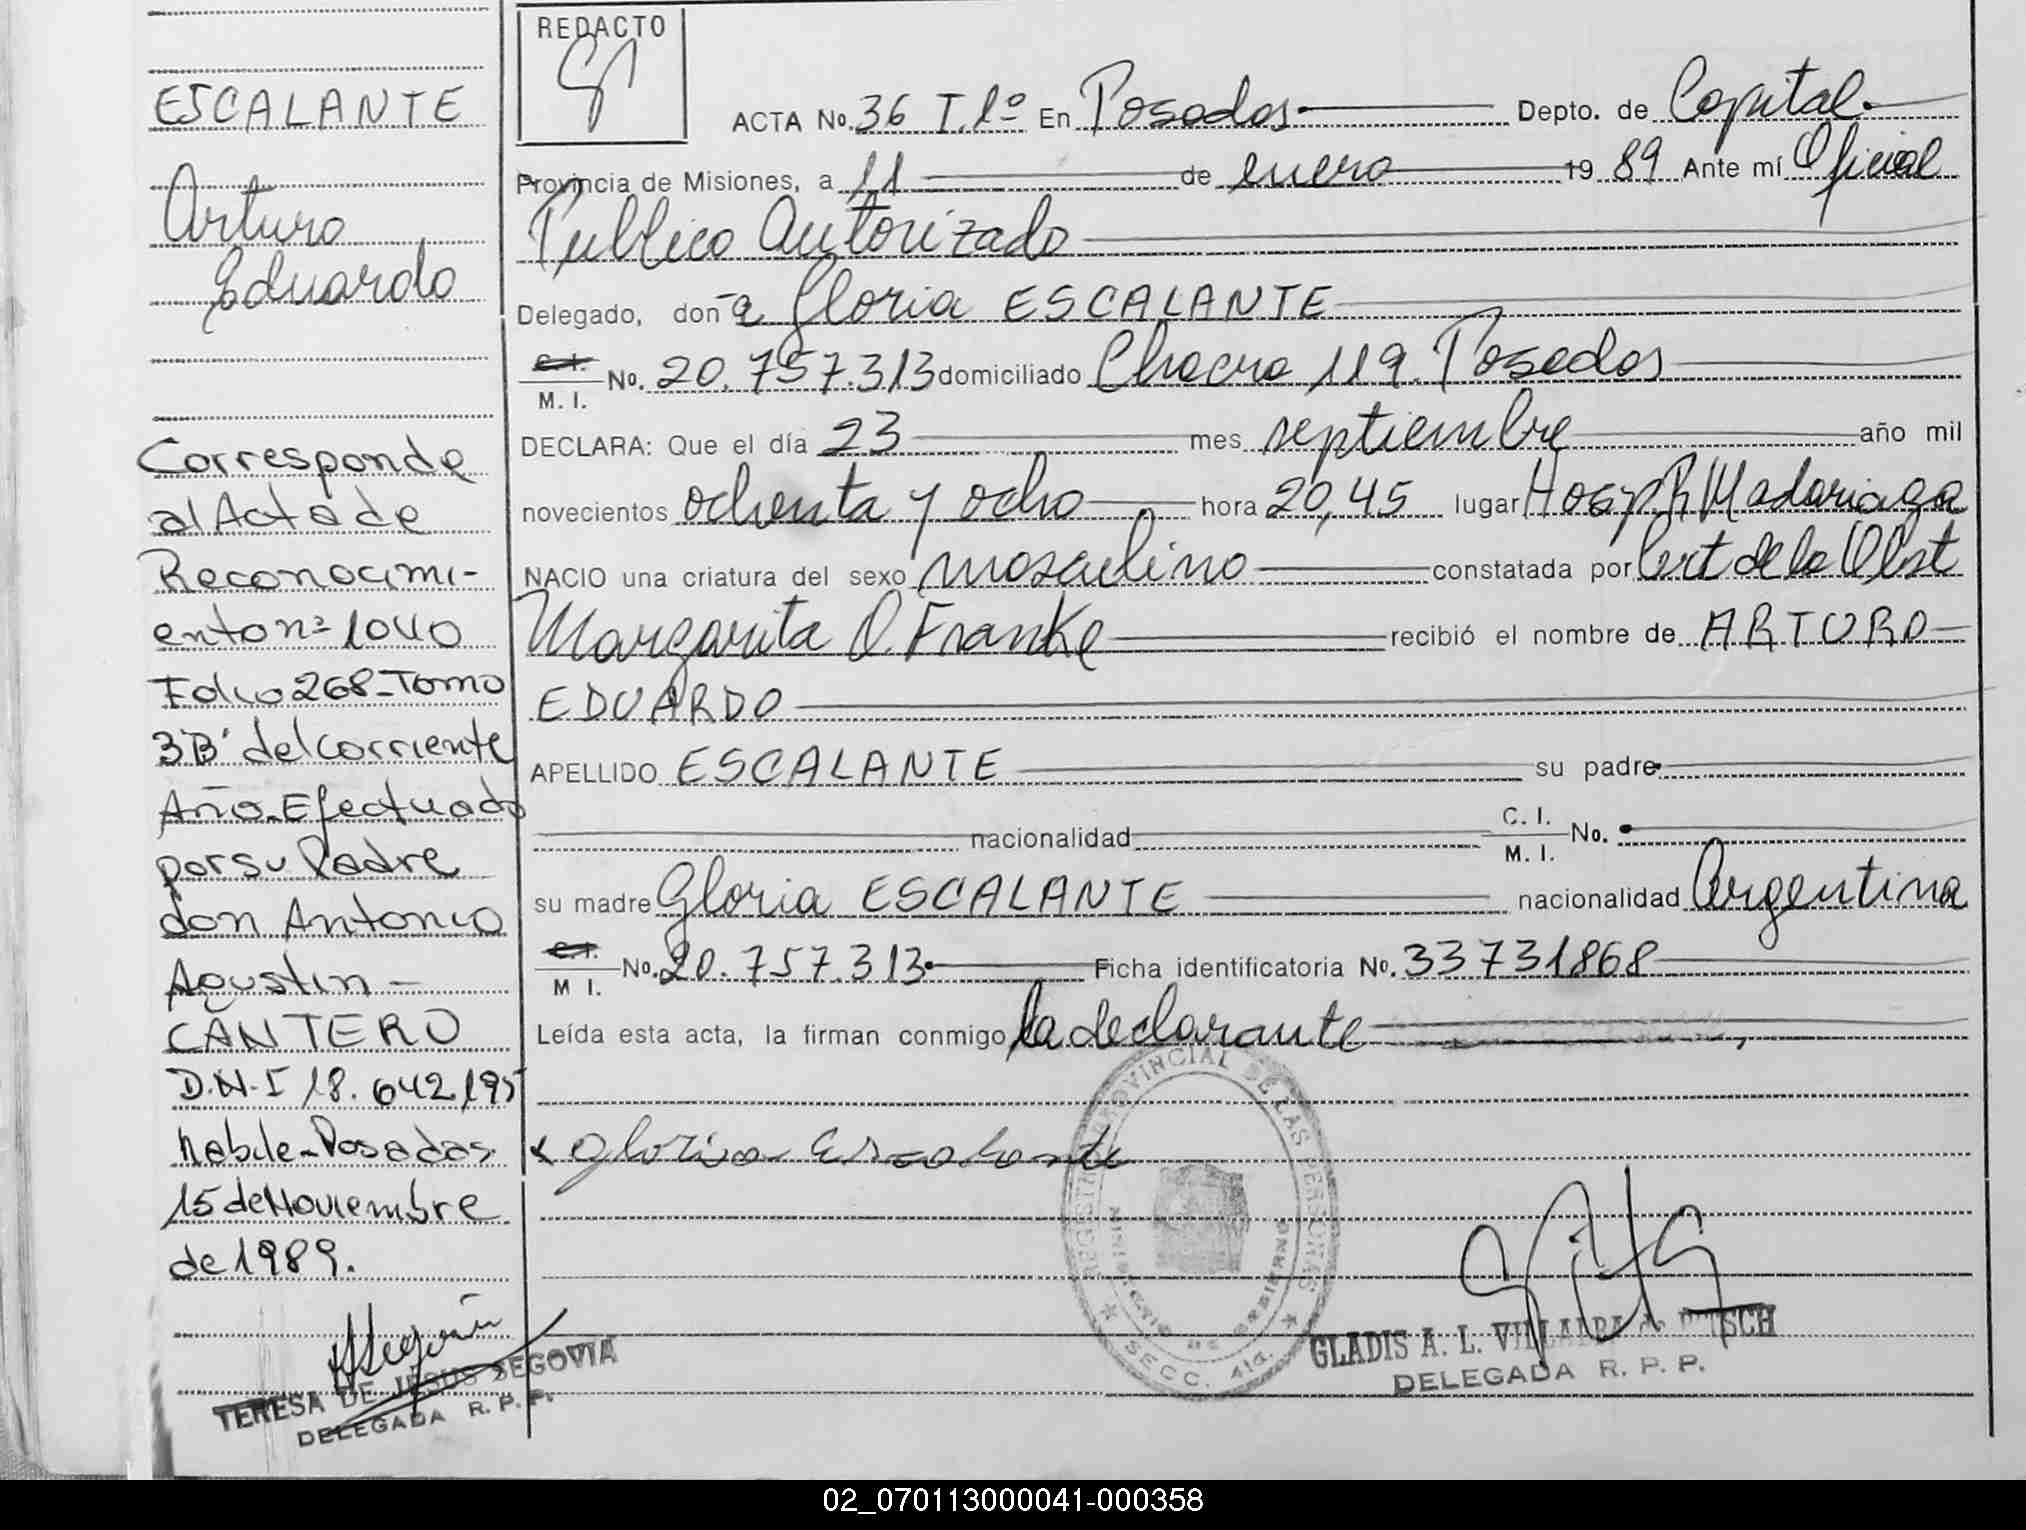 ESCALANTE
Arturo
Eduardo
Corresponde
al Acta de
Reconocimi-
ento nº 1040
Folio 268-Tomo
3"B" del corriente
Año-Efectuado
por su Padre
don Antonio
Agustin -
CANTERO
D.N.I 18.642.195
habile-Posadas
15 de Noviembre
de 1989.
TERESA DE JESUS SEGOVIA
DELEGADA R. P. P.
REDACTO
ACTA No. 36 T.1º En Posadas Depto. de Capital.
Provincia de Misiones, a 11 de enero 1989 Ante mí Oficial
Publico Autorizado
Delegado, doña Gloria ESCALANTE
C.I. M. I. No. 20.757.313 domiciliado Chacra 119. Posadas
DECLARA: Que el día 23 mes septiembre año mil
novecientos ochenta y ocho hora 20,45 lugar Hosp R Madariaga
NACIO una criatura del sexo masculino constatada por Cert de la Obst
Margarita O. Franke recibió el nombre de ARTURO
EDUARDO
APELLIDO ESCALANTE su padre
nacionalidad C. I. M. I. No.
su madre Gloria ESCALANTE nacionalidad Argentina
C.I. M I. No. 20.757.313 Ficha identificatoria No. 33731868
Leída esta acta, la firman conmigo la declarante
Gloria Escalante
REGISTRO PROVINCIAL DE LAS PERSONAS
MINISTERIO DE GOBIERNO
SECC. 4ta.
GLADIS A. L. VILLALBA de
DELEGADA R. P. P.
02_070113000041-000358